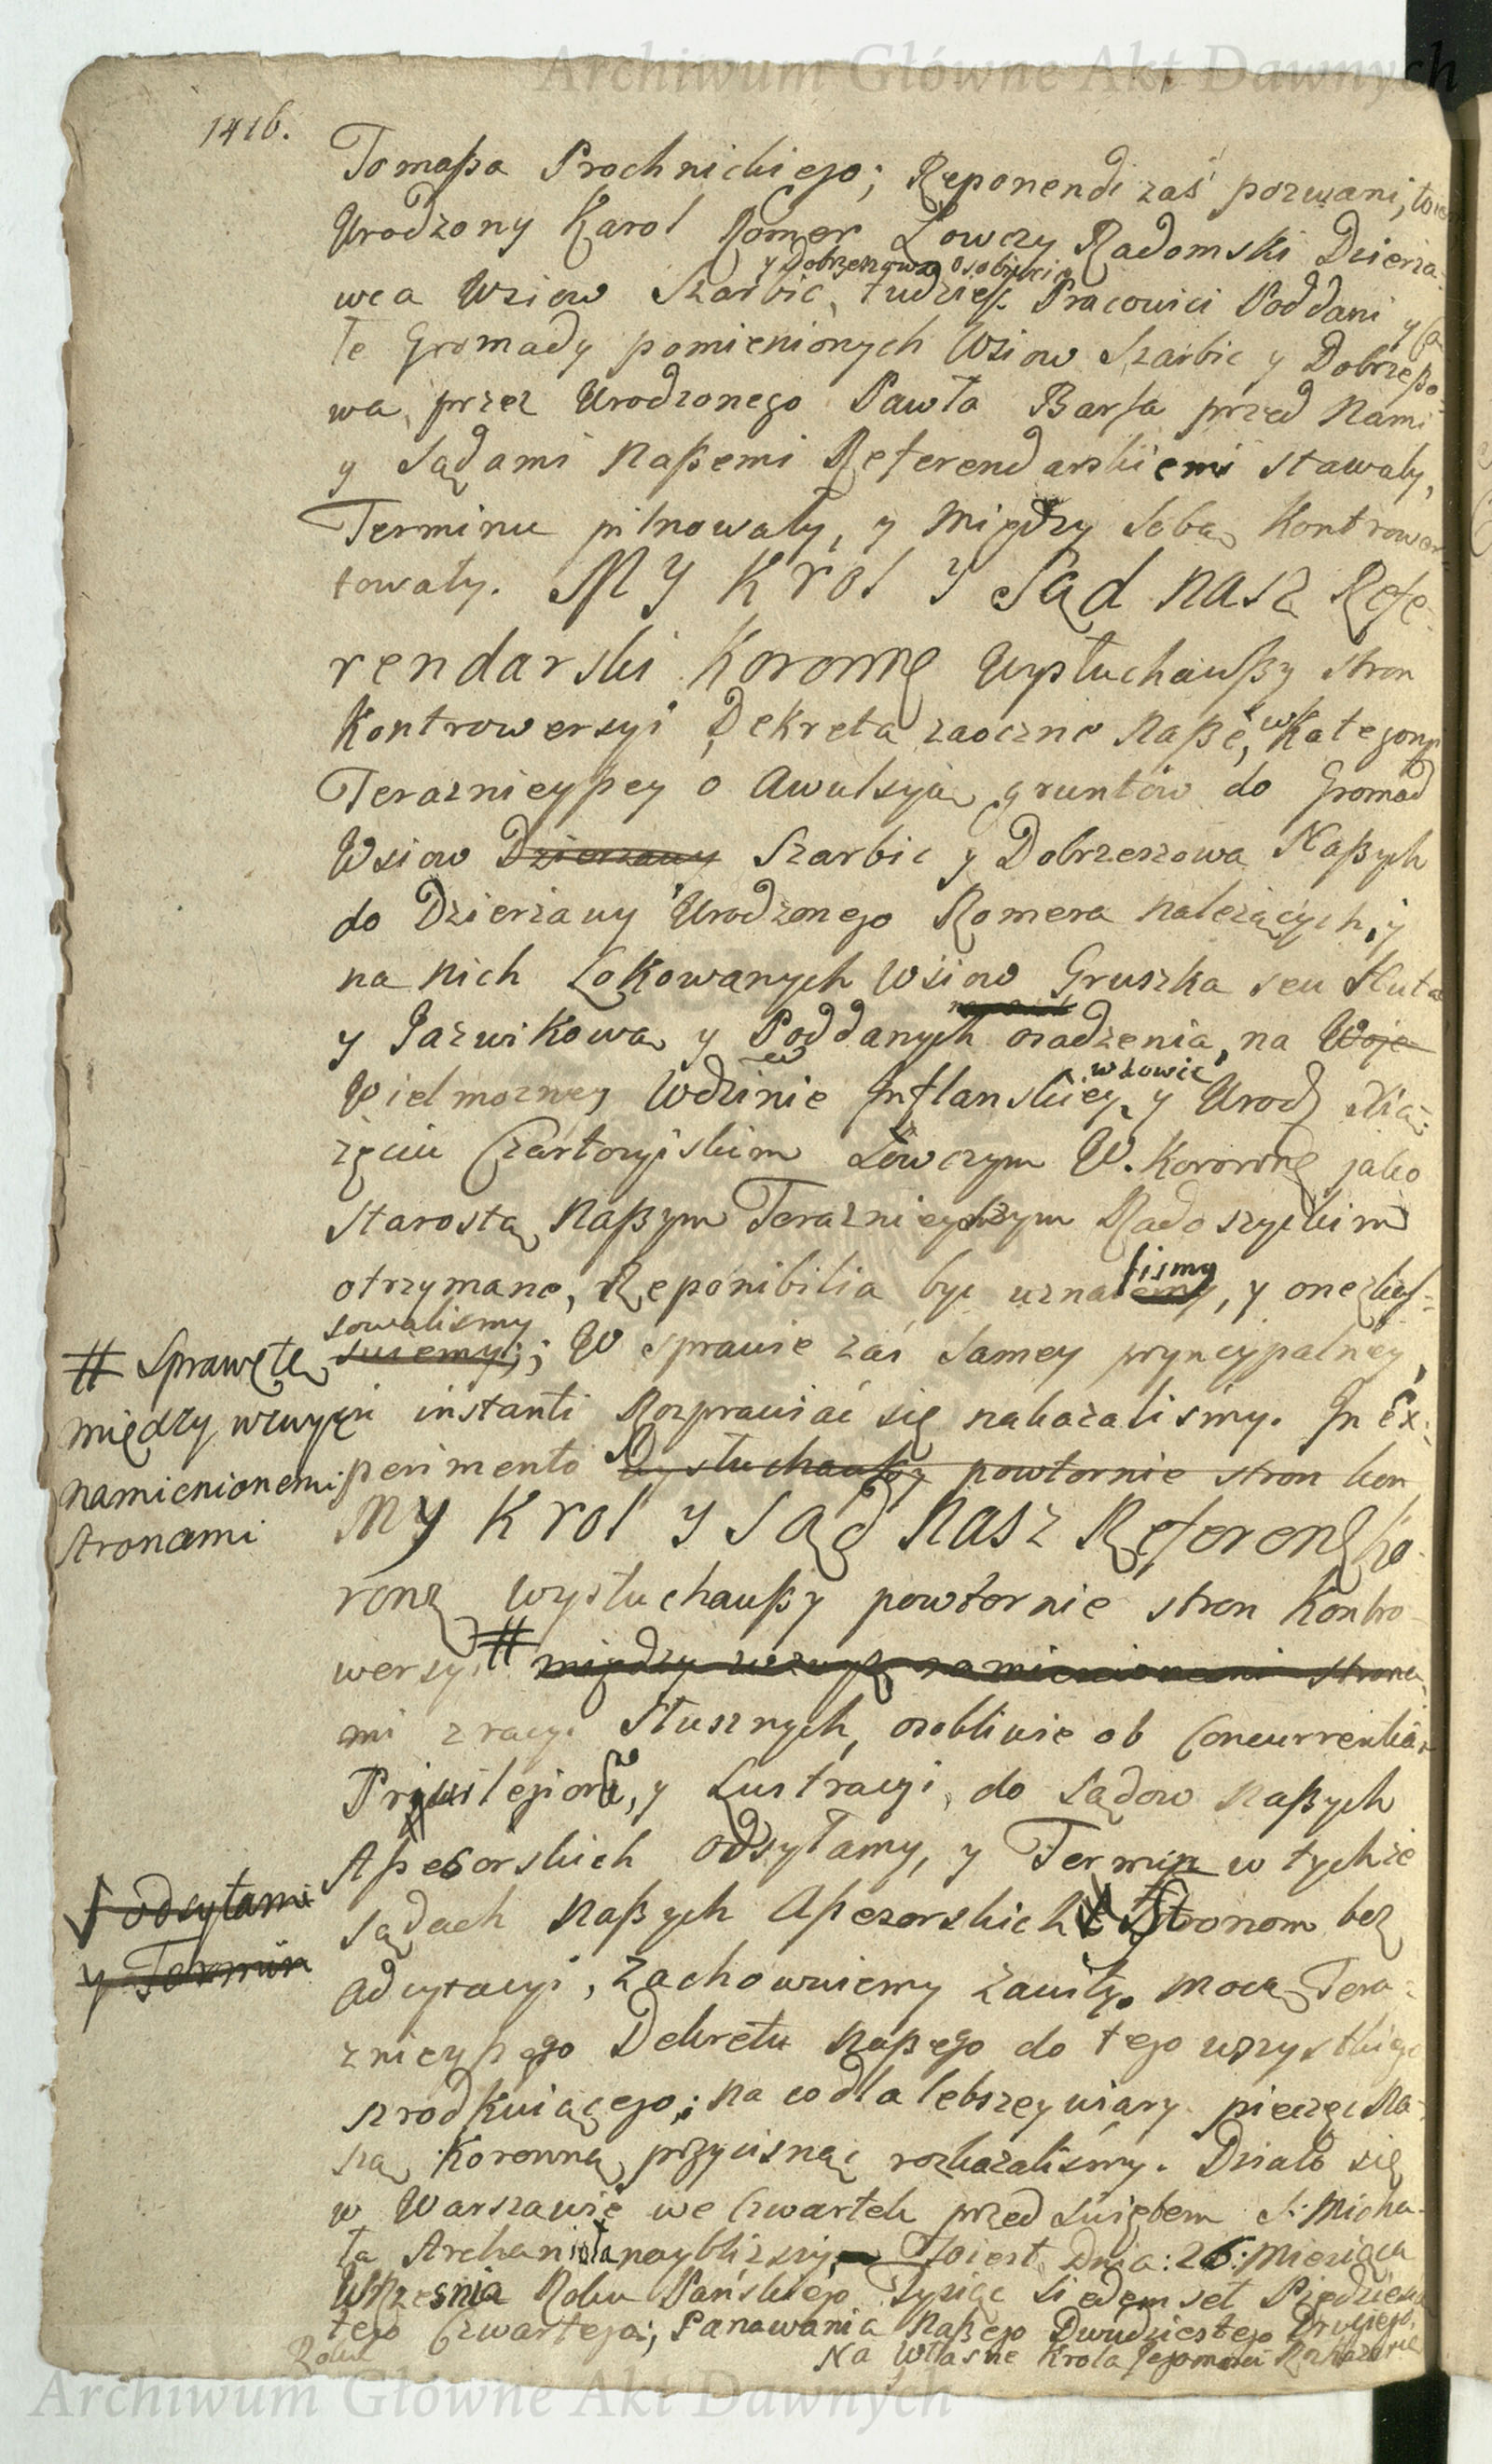 Archiwum Główne Akt Dawnych
1416.
Tomaßa Prochnickiego; Reponendi zaś pozwani, to iest
Urodzony Karol Romer Łowczy Radomski Dzierza-
y Dobrzeszowa osobiscie
wca Wsiow Szarbic, tudzież Pracowici Poddani y ca
łe Gromady pomienionych Wsiow Szarbic y Dobrzeßo-
wa, przez Urodzonego Pawła Barsa przed Nami
y Sądami Naßemi Referendarskiemi stawały,
Terminu pilnowały, y między Sobą Kontrower-
towały. MY Krol y Sąd nasz Refe-
rendarski Koronny Wysłuchawßy stron
Kontrowersyi Dekreta zaoczne Naße, w Kategoryi
Teraznieyßey o Awulsyią gruntów do Gromad
Wsiow Dzierzawy Szarbic y Dobrzeszowa Naßych
do Dzierzawy Urodzonego Romera należących, y
na nich Lokowanych Wsiow Gruszka seu Huta
y Jazwikowa y Poddanych osadzenia, na Woje
Wielmozney Wdzinie Inflanskiey, wdowie y Urodz Xią-
zęciu Czartoryiskim Łowczym W. Koronn jako
Starostą Naßym Teraznieyszym Radoszyckim
lismy
otrzymane, Reponibilia być uznalemy, y one kas-
sowalismy
# Sprawę tę suiemy; W sprawie zaś samey pryncypalney,
między wzwyż in instanti Rozprawiać się nakazalismy. In Ex-
namienionemi perimento Wysłuchawßy powtornie stron kon
stronami MY Krol y Sąd Nasz Referend Ko-
ronn wysłuchawßy powtornie stron Kontro-
wersyi # między wzwyż namienionemi strona-
mi z racyi Słusznych, osobliwie ob Concurrentiam
Priwilegiorũ, y Lustracyi, do Sądow Naßych
Aßesorskich odsyłamy, y Termin w tychże
√ odsyłamy
sądach Naßych Aßesorskich Stronom bez
y Termin
adcytacyi, zachowuiemy zawity. Mocą Tera-
znieyßego Dekretu Naßego do tego wszystkiego
szrodkuiącego; Na co dla lebszey wiary pieczęć Na-
szą Koronną przycisnąć rozkazalismy. Działo się
w Warszawie we Czwartek przed Swiętem S: Micha-
ła Archanioła naybliższy, To iest Dnia: 26: Miesiąca
Wrzesnia Roku Pańskiego Tysiąc Siedemset Piędziesią
tego Czwartego; Panowania Naßego Dwudziestego Drugiego.
Roku
Na Własne Krola Jegomosci Rozkazanie
Archiwum Główne Akt Dawnych